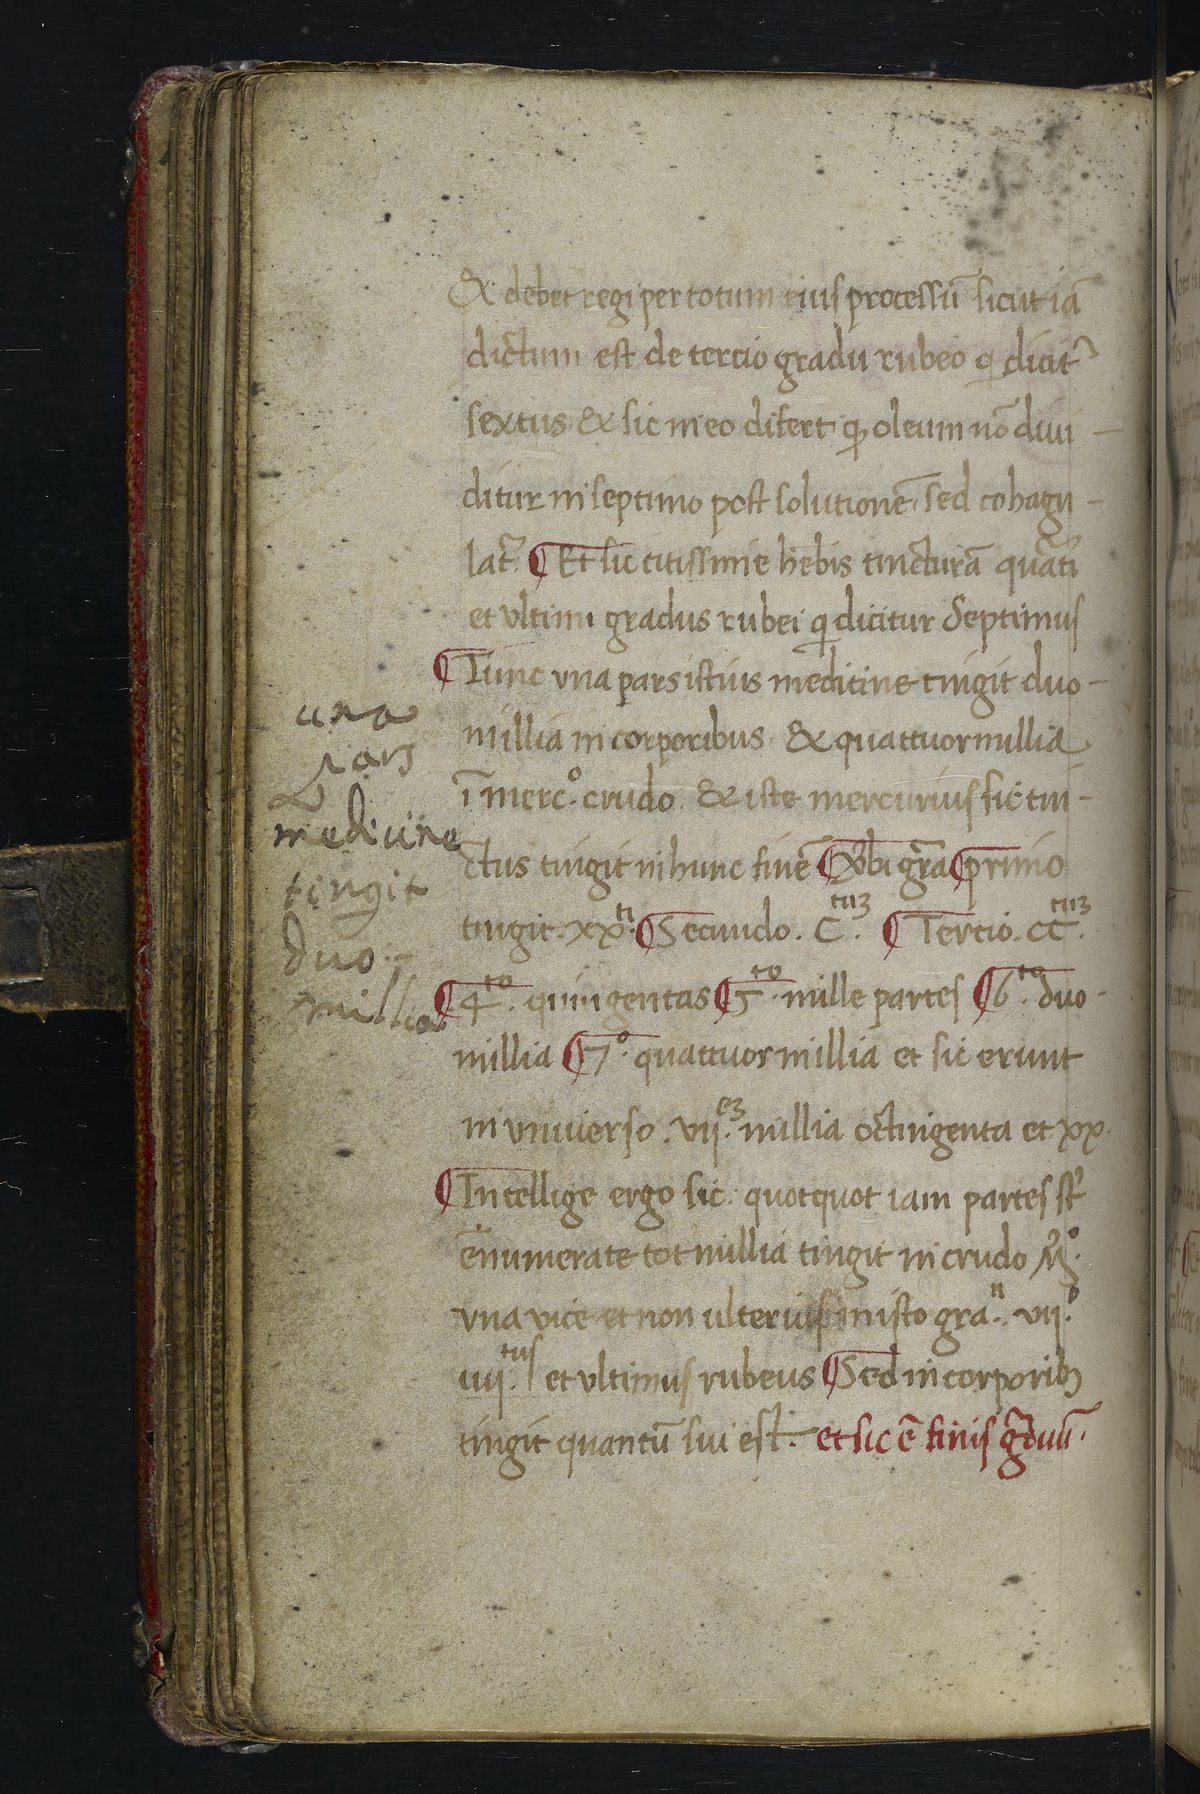 & debet regi per totum eius processū sicut iā
dictum est de tercio gradu rubeo q dicit
sextus & sic in eo difert q oleum nō divi
ditur in septimo post solutionē sed cohagu
lat. Et sic citissime hēbis tincturā quarti
et vltimi gradus rubei q dicitur Septimus
Tunc vna pars istius medicine tingit duo
millia in corporibus & quattuor millia
ī merc.º crudo. & iste mercurius sic tin
ctus tingit in hunc finē Vbi gr̄a primo
tingit. xx.ti Secundo. C.tu3 Tercio. CC.tu3
4.to quingentas 5.to mille partes 6.to duo
millia 7.º quattuor millia et sic erunt
in vniuerso. vii.e3 millia octingenta et xx.
Intellige ergo sic. quotquot iam partes st̄
enumerate tot millia tingit in crudo
vna vice et non ulterius in isto gra.n vii.º
iiii.tus et vltimus rubeus Sed in corporib3
tingit quantū sui est. et sic ē finis gr̄duū.
una
pars
medicine
tingit
duo
millia